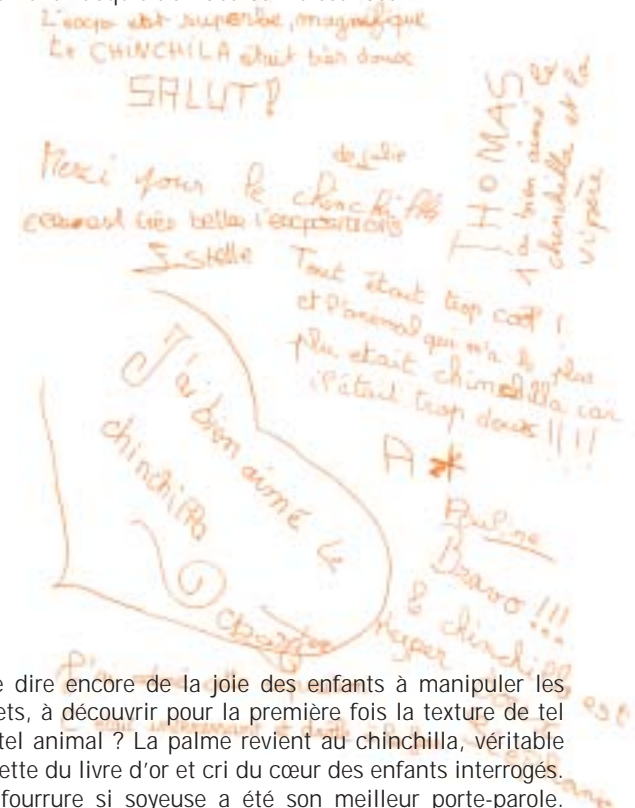 L'expo est superbe, magnifique
Le CHINCHILA était bien doux
SALUT !
de Julie
Merci pour le chinchilla
très belles l'expositions
Estelle
THOMAS
a bien aimé le
chinchilla et la
vipère
Tout était trop cool !
et l'animal qui m'a le plus
plu etait chinchilla car
il était trop doux !!!!
A*
J'ai bien aimé le
chinchilla
Pauline
Bravo !!!
le chinchilla est
Hyper
e dire encore de la joie des enfants à manipuler les
ets, à découvrir pour la première fois la texture de tel
tel animal ? La palme revient au chinchilla, véritable
ette du livre d'or et cri du cœur des enfants interrogés.
fourrure si soyeuse a été son meilleur porte-parole.